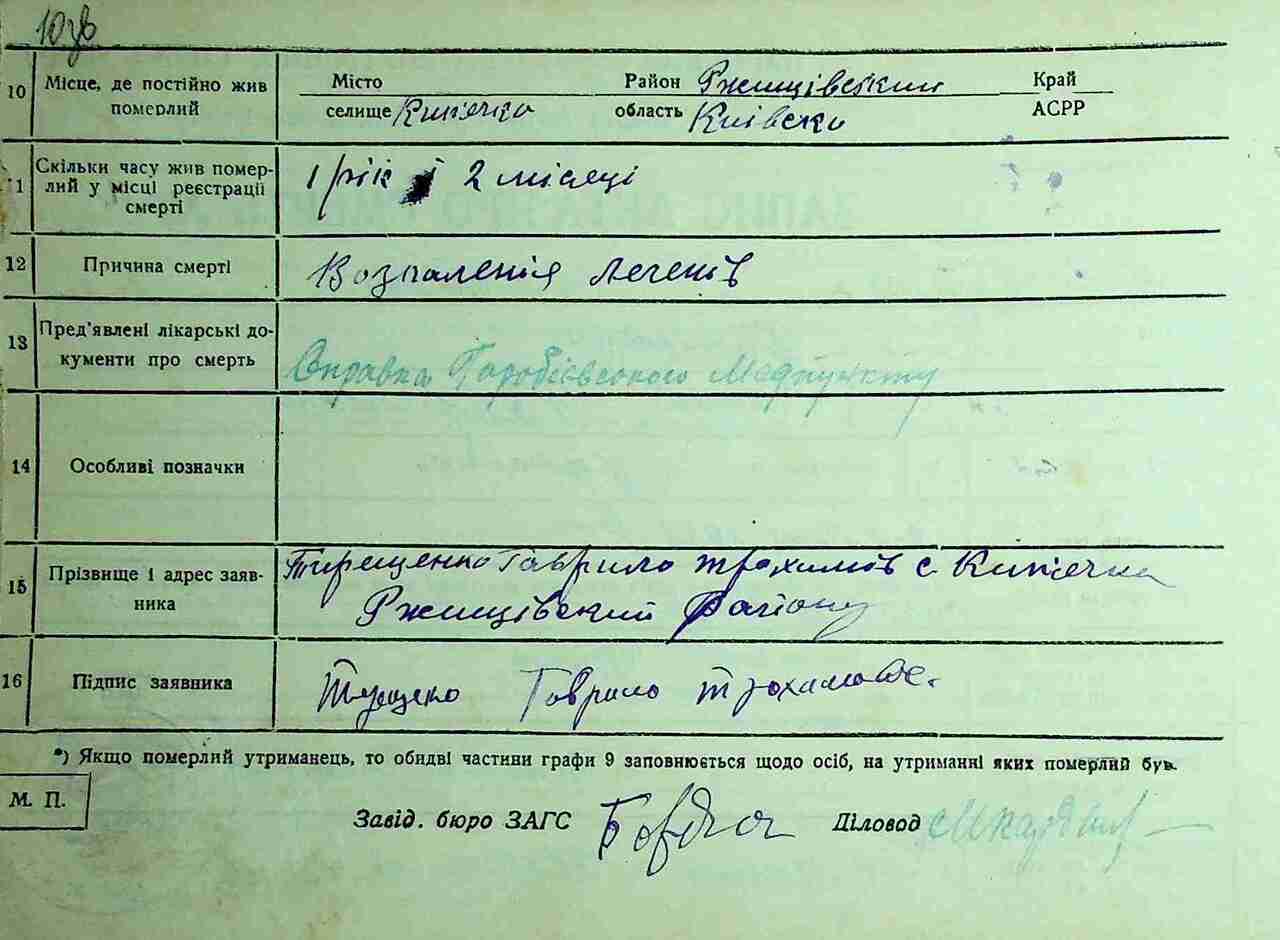 10 зв
10 Місце, де постійно жив померлий Місто Район Ржищівский Край
селище Кипячка область Київска АСРР
11 Скільки часу жив помер-
лий у місці реєстрації
смерті 1 рік і 2 місяці
12 Причина смерті Возпаленія легенів
13 Пред'явлені лікарські до-
кументи про смерть Справка Медпункту
14 Особливі позначки
15 Прізвище і адрес заяв-
ника Тирещенко Гаврило Трохимов с. Кипячка
Ржищівский району
16 Підпис заявника Гаврило
*) Якщо померлий утриманець, то обидві частини графи 9 заповнюється щодо осіб, на утриманні яких померлий був.
М. П.
Завід. бюро ЗАГС Діловод